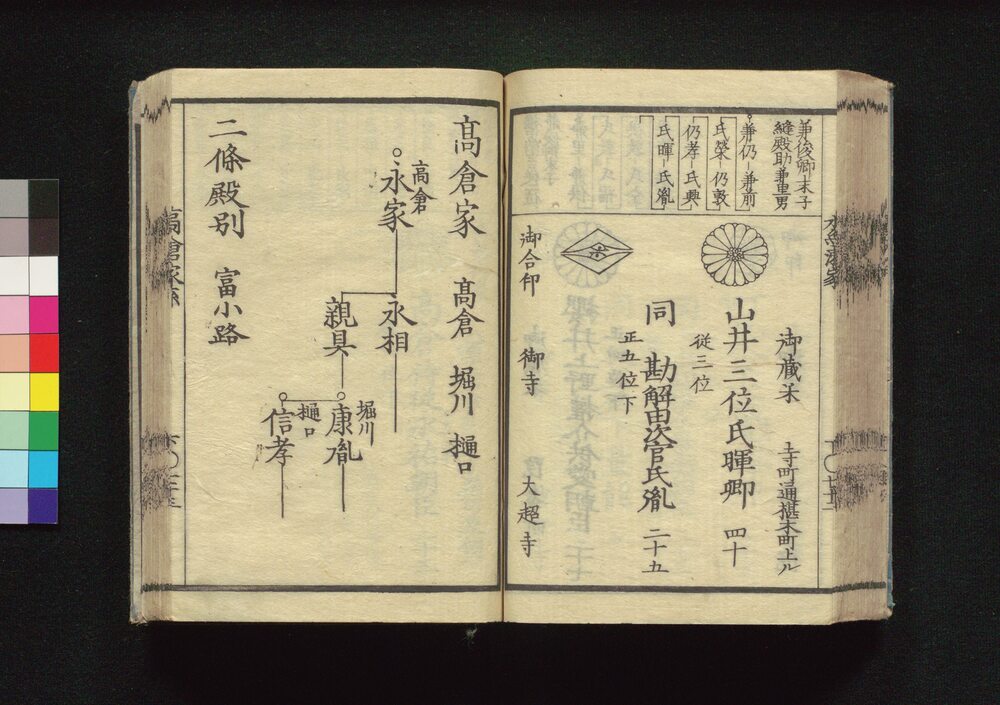 兼俊卿末子
縫殿助兼重男
兼仍－兼前
氏榮－仍敦
仍孝－氏興
氏暉－氏胤
御蔵米 寺町通椹木町上ル
山井三位氏暉卿 四十
従三位
同 勘解由次官氏胤 二十五
正五位下
御合印 御寺 大超寺
髙倉家 髙倉 堀川 樋口
髙倉
永家
永相
親具
堀川
康胤
樋口
信孝
二條殿別 富小路
髙倉家